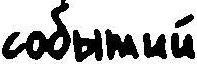 событий